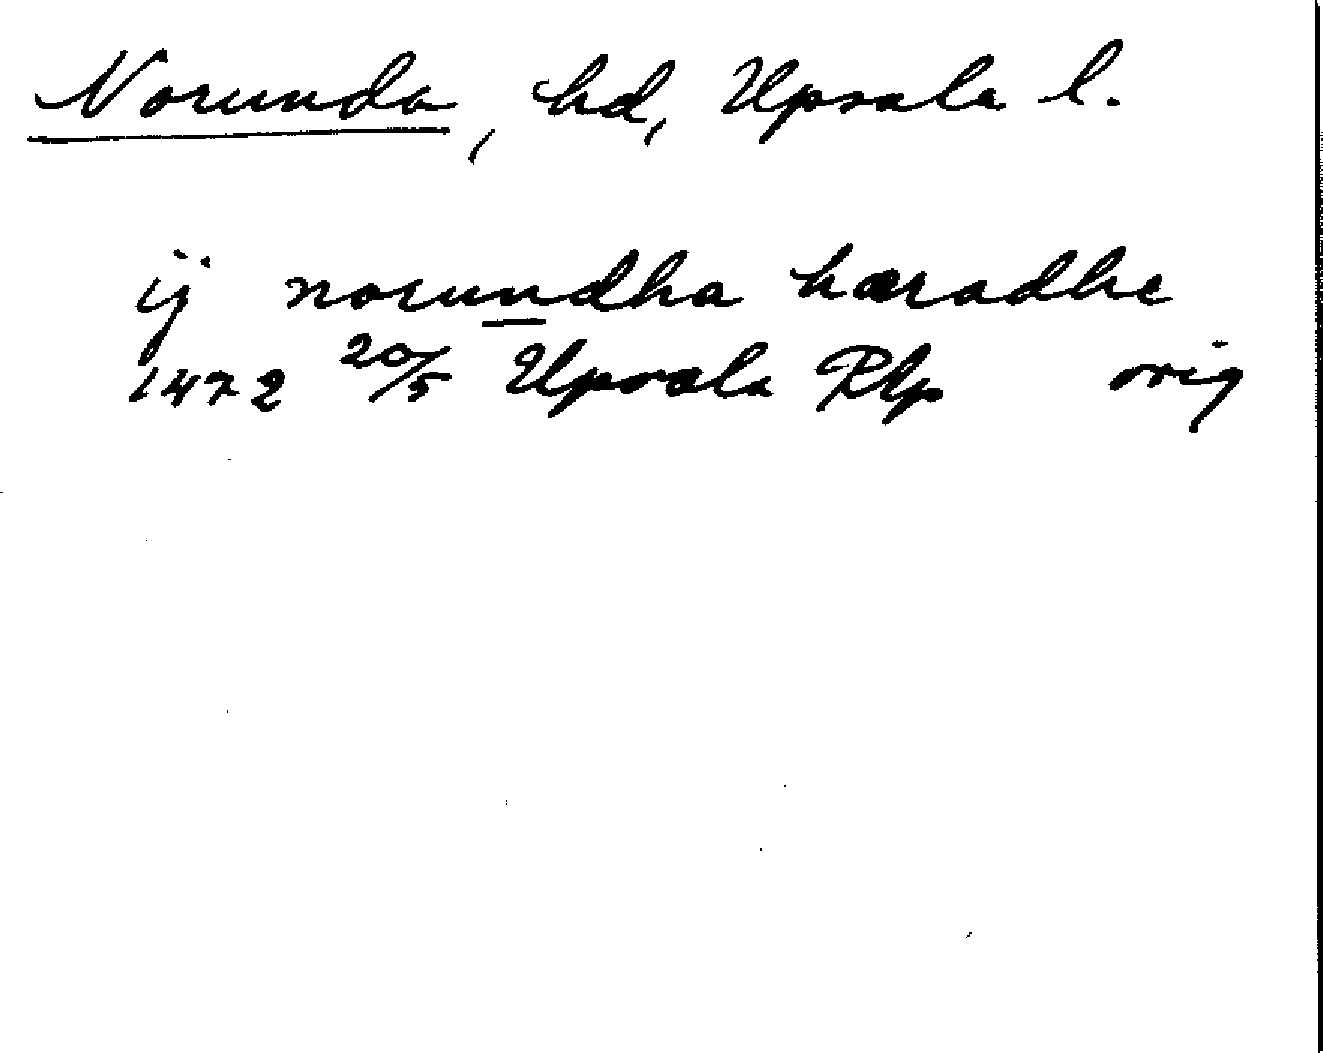 Norunda, hd, Upsala l.
ij norundha hæradhe
1472 20/5 Upsala RAp orig